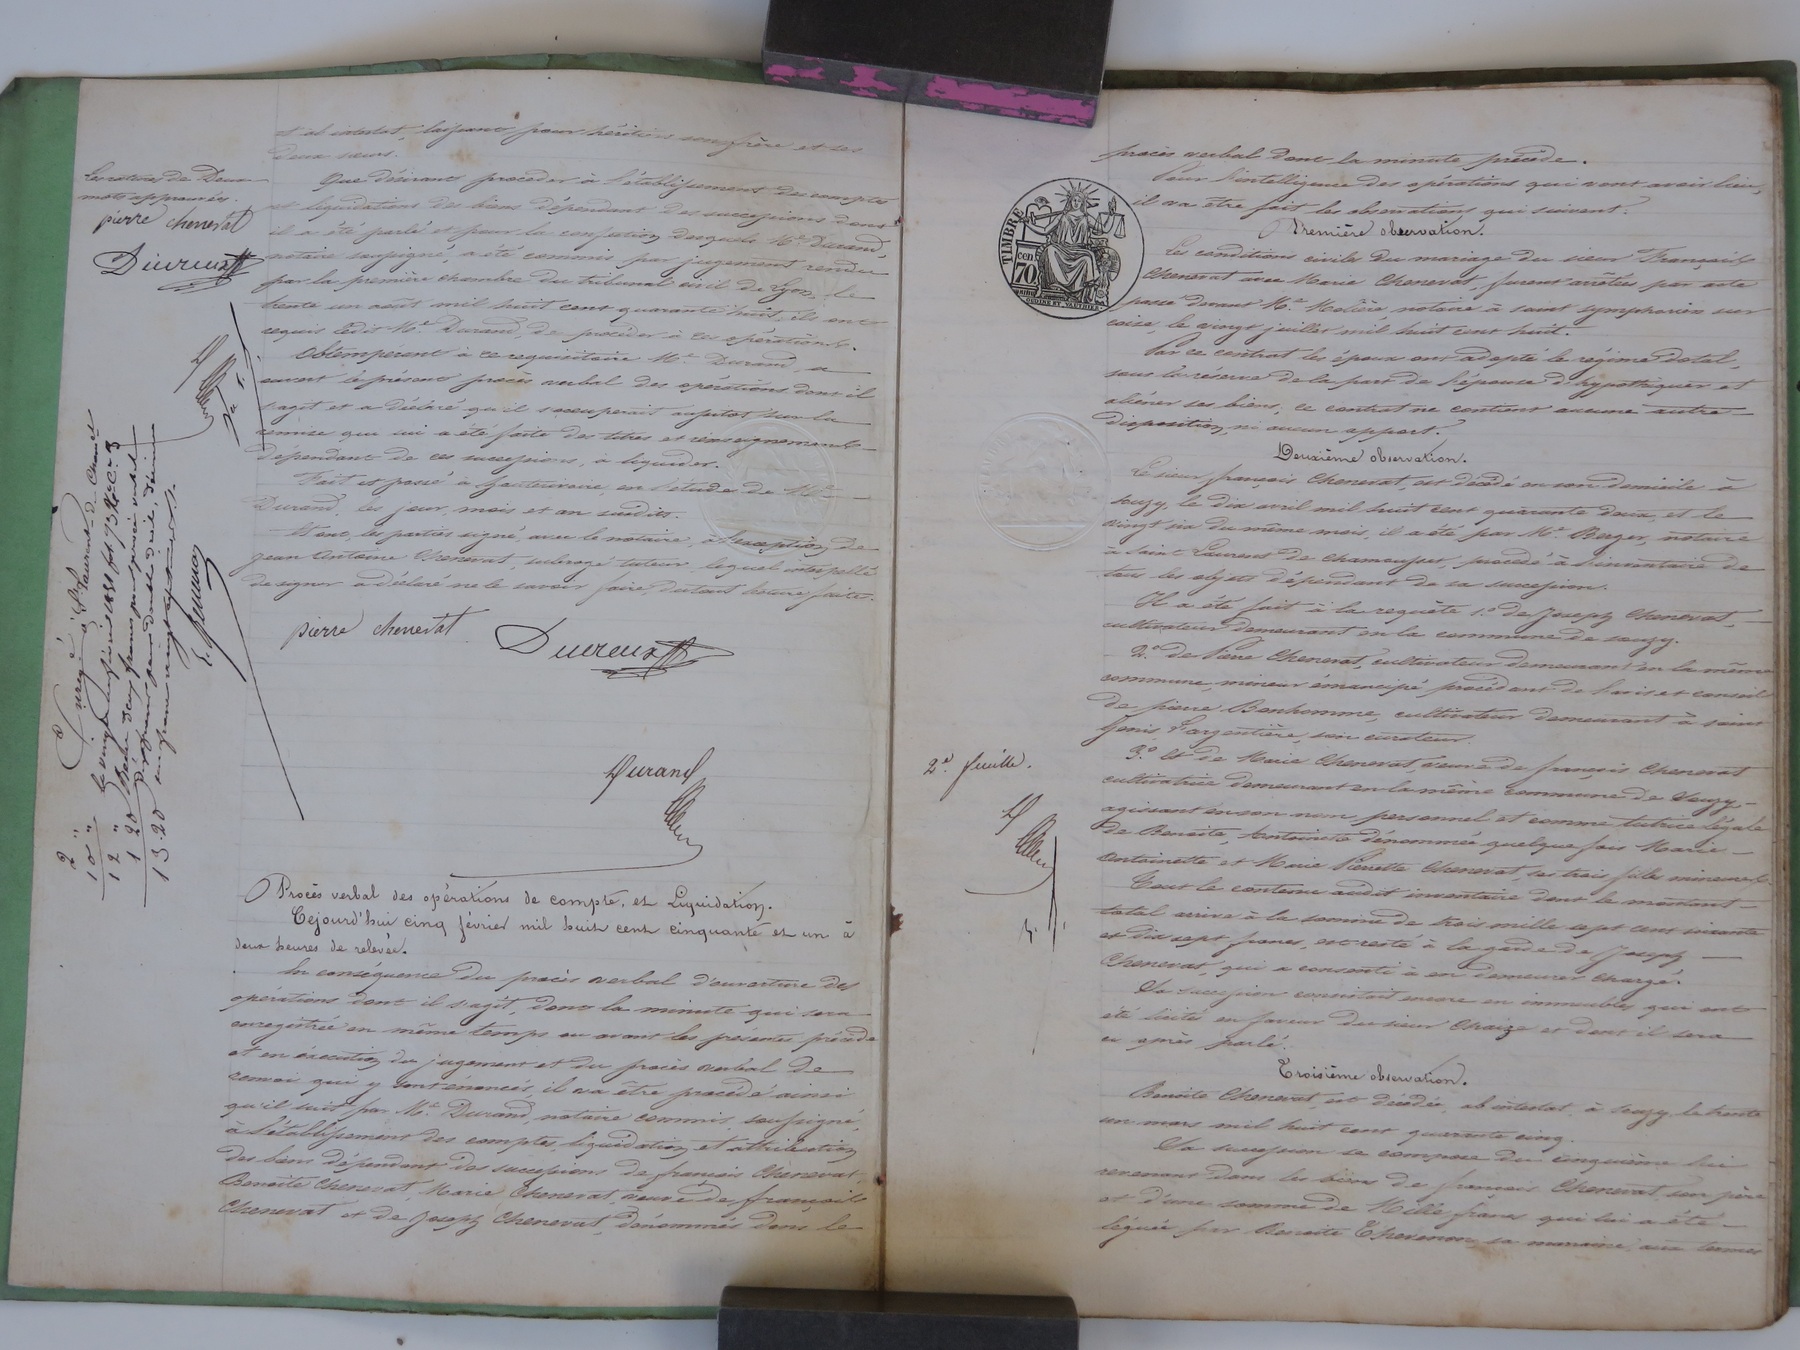 et ab intestat, laissant pour héritiers son frère et ses
deux sœurs.
Que désirant procéder à l'établissement des comptes
et liquidations des biens dépendant des successions dont
il a été parlé et pour la confection desquels Me Durand,
notaire soussigné, a été commis par jugement rendu
par la première chambre du tribunal civil de Lyon, le
trente un août mil huit cent quarante huit, ils ont
requis ledit Me Durand, de procéder à ces opérations.
Obtempérant à ce requisitoire Me Durand a
ouvert le présent procès verbal des opérations dont il
s'agit et a déclaré qu'il s'occuperait aussitôt sur la
remise qui lui a été faite des titres et renseignements
dépendant de ces successions, à liquider.
Fait et passé à en l'étude de Me
Durand, les jour, mois et an susdits.
Et ont, les parties signé, avec le notaire, à l'exception de
jean Antoine Chenevat, subrogé tuteur, lequel interpellé
de signer a déclaré ne le savoir faire, du tout lecture faite.
pierre chenevat Ducreux
Durand
Procès verbal des opérations de compte, et Liquidation.
Cejourd'hui cinq février mil huit cent cinquante et un à
deux heures de relevée.
En conséquence du procès verbal d'ouverture des
opérations dont il s'agit, dont la minute qui sera
enregistrée en même temps ou avant les présentes précède
et en exécution du jugement et du procès verbal de
renvoi qui y sont énoncés, il va être procédé ainsi
qu'il suit par Me Durand, notaire commis, soussigné,
à l'établissement des comptes, liquidation et attribution
des biens dépendant des successions de françois Chenevat,
Benoite Chenevat, Marie Chenevat, veuve de françois
Chenevat et de Joseph Chenevat, dénommés dans le
mots approuvés.
pierre chenevat
Ducreux
procès verbal dont la minute précède.
Pour l'intelligence des opérations qui vont avoir lieu,
il va être fait les observations qui suivent.
Première observation.
Les conditions civiles du mariage du sieur François
Chenevat avec Marie Chenevat, furent arrêtées par acte
passé devant Me notaire à saint symphorien sur
coise, le vingt juillet mil huit cent huit.
Par ce contrat les époux ont adopté le régime dotal,
sous la réserve de la part de l'épouse d'hypothéquer et
aliéner ses biens, ce contrat ne contient aucune autre
disposition, ni aucun apport.
Deuxième observation.
Le sieur françois Chenevat, est décédé en son domicile à
souzy, le dix avril mil huit cent quarante deux, et le
vingt six du même mois, il a été par Me Berger, notaire
à Saint Laurent de chamousset, procédé à l'inventaire de
tous les objets dépendant de sa succession.
Il a été fait à la requête 1o de Joseph Chenevat,
cultivateur demeurant en la commune de souzy.
2o de Pierre Chenevat, cultivateur demeurant en la même
commune, mineur émancipé, procédant de l'avis et conseil
de pierre Bonhomme, cultivateur demeurant à saint
genis l'argentière, son curateur.
3o Et de Marie Chenevat, veuve de françois Chenevat
cultivatrice demeurant en la même commune de Souzy,
agissant en son nom personnel et comme tutrice légale
de Benoite, Antoinette dénommée quelque fois Marie
Antoinette et Marie Pierrette Chenevat, ses trois filles mineures.
Tout le contenu audit inventaire dont le montant
total arrive à la somme de trois mille sept cent soixante
et dix sept francs, est resté à la garde de Joseph
Chenevat, qui a consenti à en demeurer chargé.
Sa succession consistait encore en immeubles qui ont
été licités en faveur du sieur Chaize et dont il sera
ci après parlé.
Troisième observation.
Benoite Chenevat, est décédée, ab intestat, à souzy, le trente
un mars mil huit cent quarante cinq.
Sa succession se compose du cinquième lui
revenant dans les biens de françois Chenevat, son père
et d'une somme de Mille francs qui lui a été
léguée par Benoite Thevenon, sa marraine, aux termes
2e feuille.
TIMBRE
70